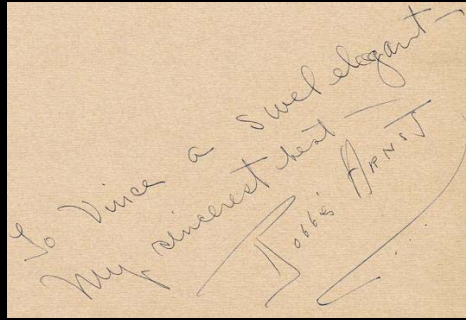 To Vince a Swel elegant —
My sincerest best —
Bobbie Arnst